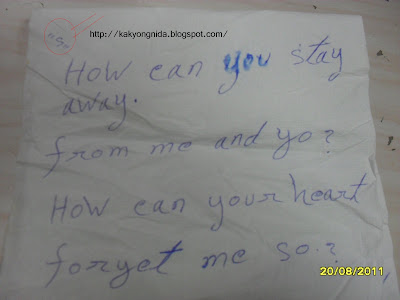 "S"
http://kakyongnida.blogspot.com/
How can you stay
away.
from me and yo?
How can your heart
forget me so.?
20/08/2011